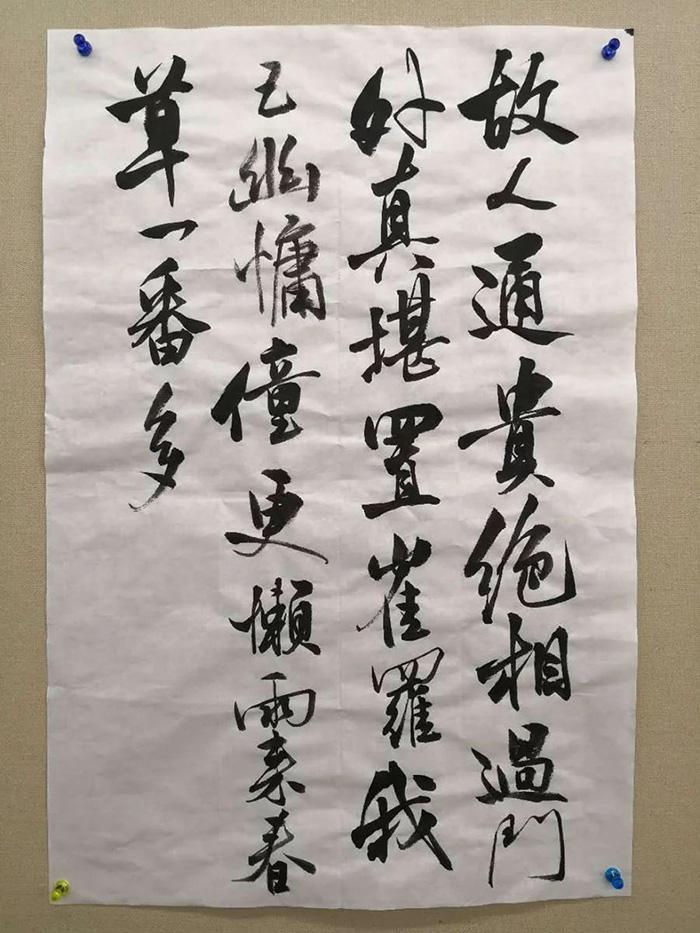 故人通貴絶相過門
外真堪置雀羅我
已幽慵僮更懶雨来春
草一番多